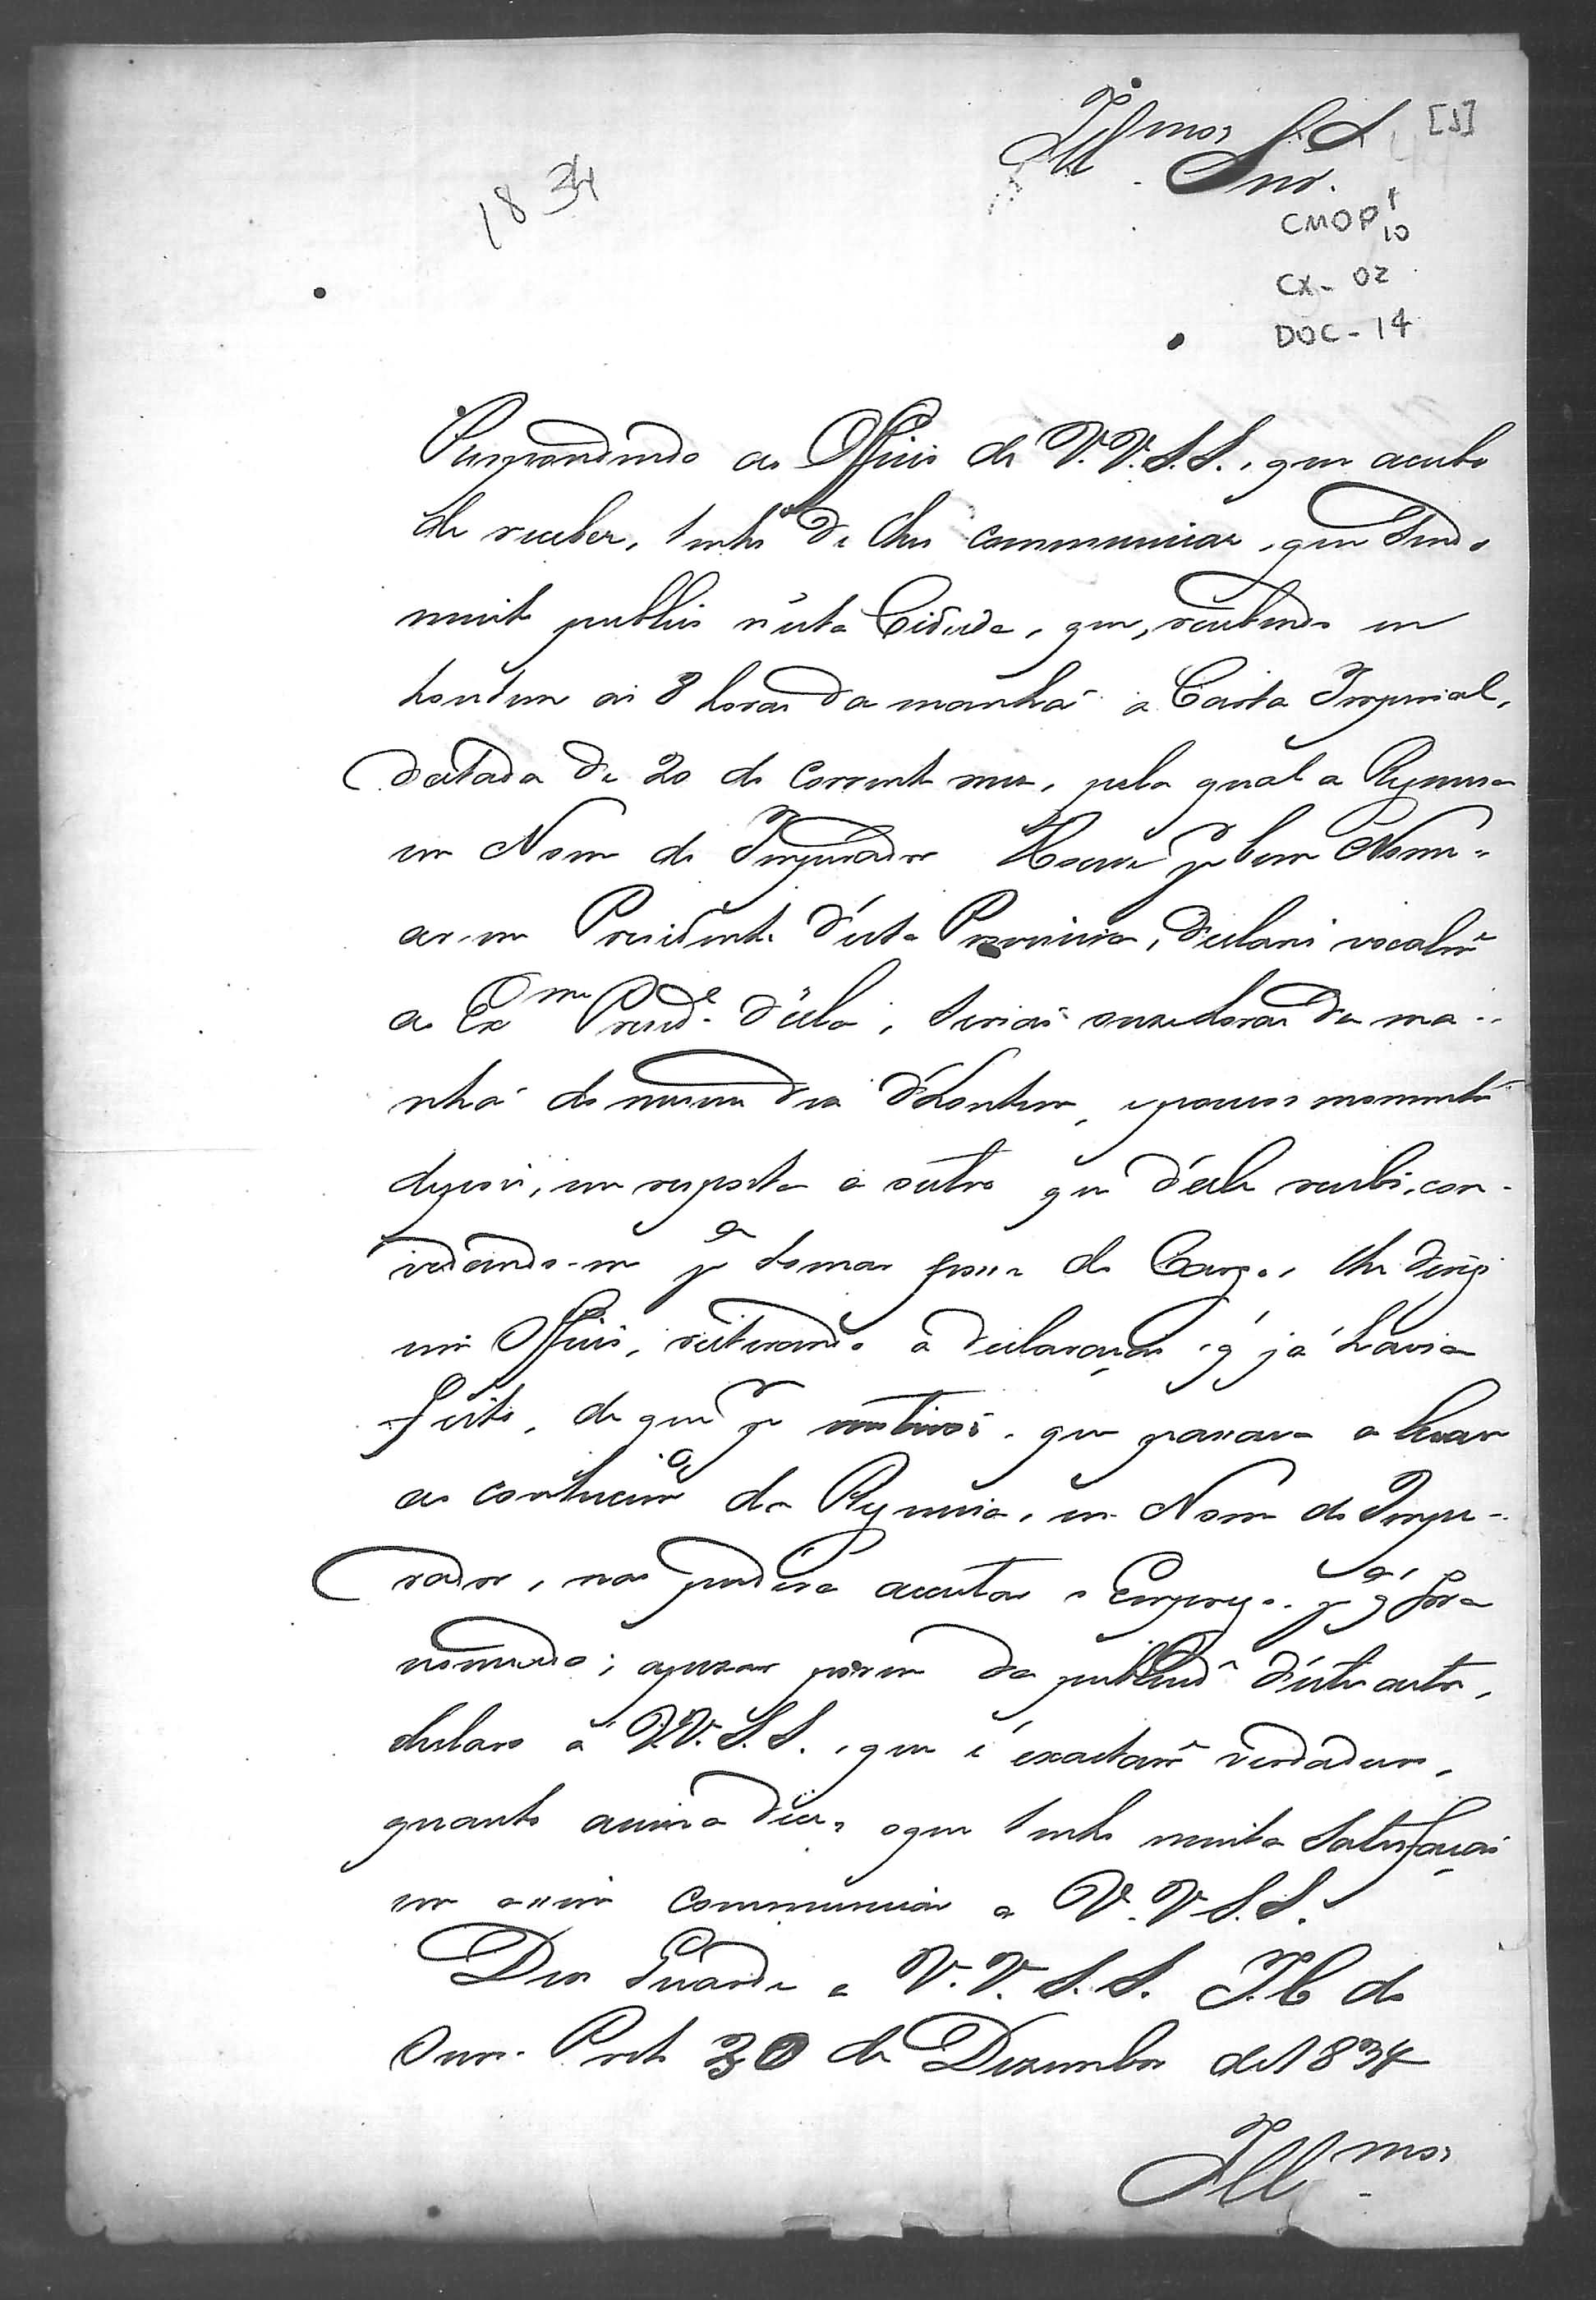 Ill.mos Snr.s
[1]
1834
CMOP 1/10
CX- 02
DOC - 14
Respondendo ao Officio de V.V.S.S., que acabo
de receber, tenho de lhes communicar, que sendo
muito publico n'esta Cidade, que, recebendo eu
hontem as 8 horas da manhã a Carta Imperial,
datada de 20 do corrente mez, pela qual a Regencia
em Nome do Imperador Houve p.r bem Nome-
ar-me Presidente d'esta Provincia, declarei vocalm.e
ao Ex.mo Presid.e d'ella, serião onze horas da ma-
nhã do mesmo dia d'hontem, e poucos momentos
depois, em resposta a outro que d'elle recebi, con-
vidando-me p.a tomar posse do Cargo, lhe dirigi
um Officio, reiterando a declaração, q' já havia
feito, de que p.r motivos, que passava a levar
ao conhecim.o da Regencia, em Nome do Impe-
rador, não poderia acceitar o Emprego, p.a q' fora
nomeado; apezar porem da publicid.e d'este acto,
declaro a V.V.S.S., que é exactam.e verdadeiro,
quanto acima dice, o que tenho muita satisfação
em assim communicar a V.V.S.S.
Deos Guarde a V.V.S.S. I.C. do
Ouro Preto 30 de Dezembro de 1834
Ill.mos